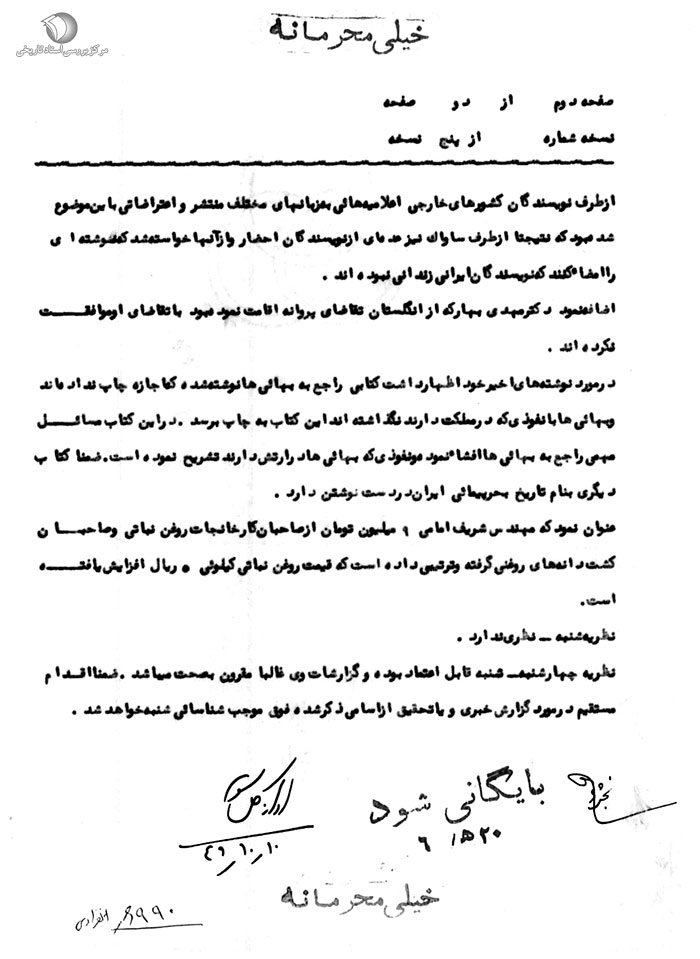 مرکز بررسی اسناد تاریخی
خیلی محرمانه
صفحه دوم از دو صفحه
نسخه شماره از پنج نسخه
از طرف نویسندگان کشورهای خارجی اعلامیه‌هائی به‌زبانهای مختلف منتشر و اعتراضاتی باین موضوع
شده بود که نتیجتا از طرف ساواك نیز عده‌ای از نویسندگان احضار و از آنها خواسته شد که نوشته ای
را امضاء کنند که نویسندگان ایرانی زندانی نبوده اند .
اضافه نمود دکتر مهدی بهار که از انگلستان تقاضای پروانه اقامت نموده بود با تقاضای او موافقت
نکرده اند .
در مورد نوشته‌های اخیر خود اظهار داشت کتابی راجع به بهائی ها نوشته شده که اجازه چاپ نداده‌اند
و بهائی ها با نفوذی که در مملکت دارند نگذاشته اند این کتاب به چاپ برسد . در این کتاب مسائل
مهمی راجع به بهائی ها افشاء نموده و نفوذی که بهائی ها در ارتش دارند تشریح نموده است . ضمنا کتاب
دیگری بنام تاریخ بحرپیمائی ایران در دست نوشتن دارد .
عنوان نمود که مهندس شریف امامی ۹ میلیون تومان از صاحبان کارخانجات روغن نباتی و صاحبان
کشت دانه‌های روغنی گرفته و ترتیبی داده است که قیمت روغن نباتی کیلوئی ۵ ریال افزایش یافته
است.
نظریه شنبه ـ نظری ندارد .
نظریه چهارشنبه ـ شنبه قابل اعتماد بوده و گزارشات وی غالبا مقرون بصحت میباشد . ضمنا اقدام
مستقیم در مورد گزارش خبری و یا تحقیق از اسامی ذکر شده فوق موجب شناسائی شنبه خواهد شد .
بایگانی شود
اداره کل سوم
۴۹٫۱۰٫۱۰
خیلی محرمانه